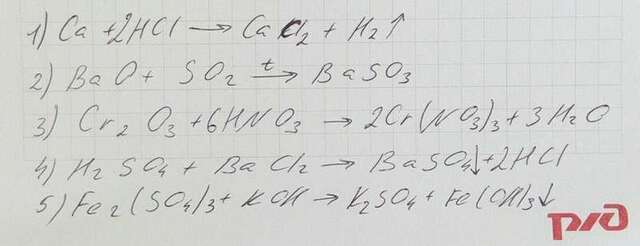 1) Ca + 2HCl → CaCl2 + H2↑
2) BaO + SO2 t→ BaSO3
3) Cr2O3 + 6HNO3 → 2Cr(NO3)3 + 3H2O
4) H2SO4 + BaCl2 → BaSO4↓ + 2HCl
5) Fe2(SO4)3 + KOH → K2SO4 + Fe(OH)3↓
РЖД